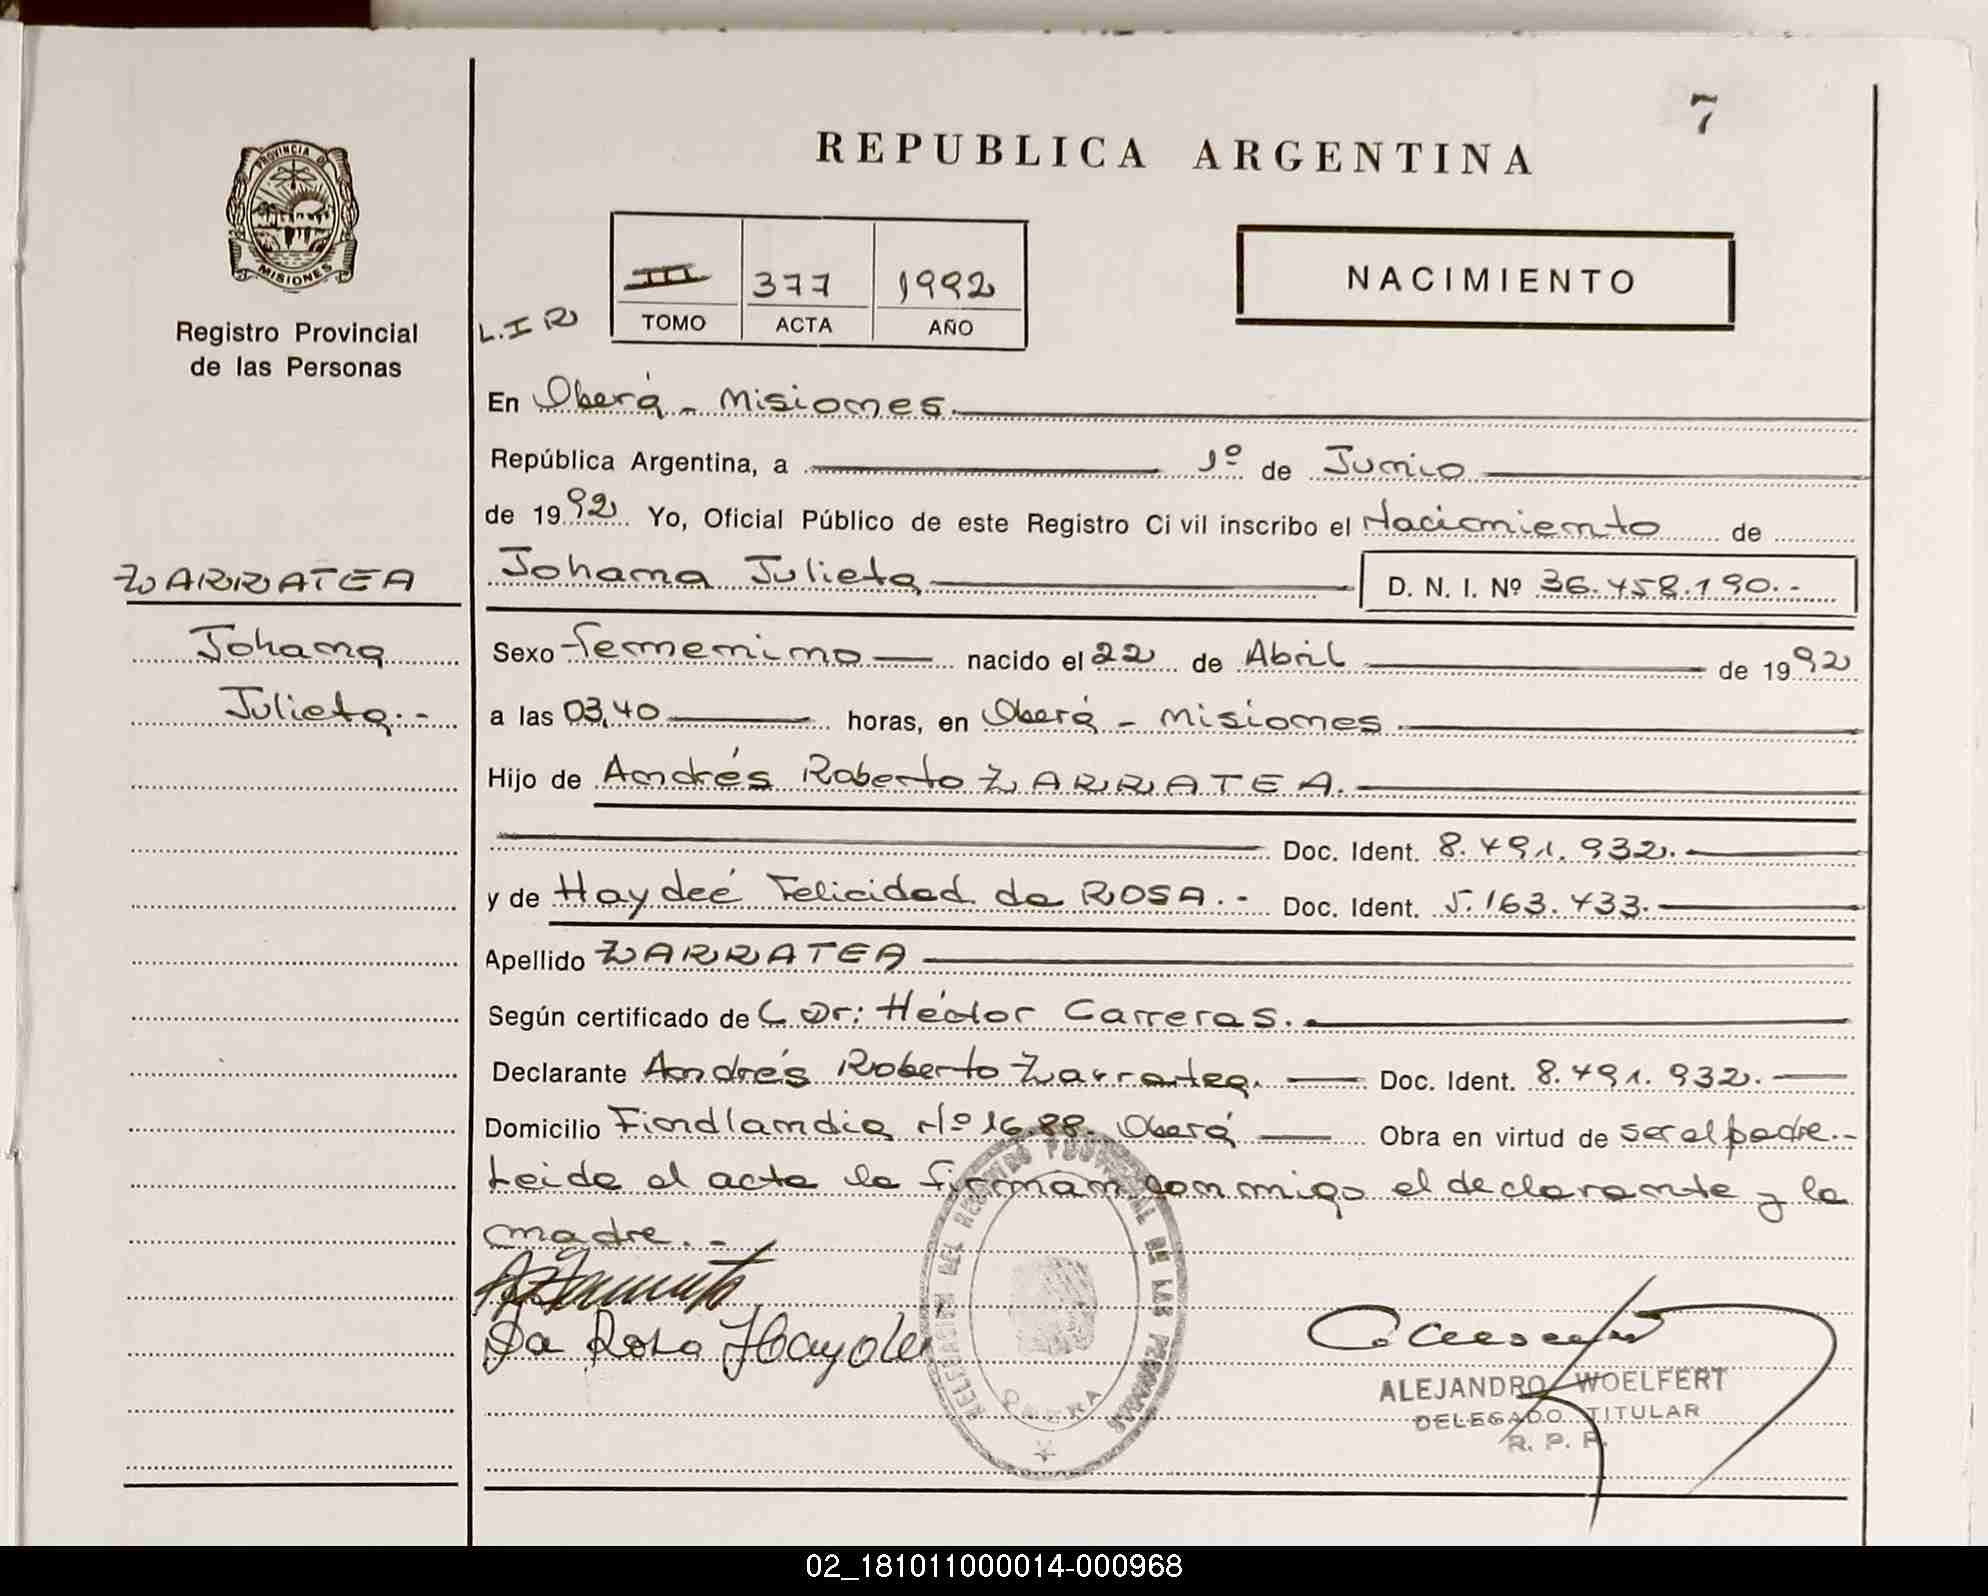 7
REPUBLICA ARGENTINA
PROVINCIA DE
MISIONES
Registro Provincial
de las Personas
L.I R
III 377 1992
TOMO ACTA AÑO
NACIMIENTO
En Oberá - Misiones.
República Argentina, a 1º de Junio
de 1992 Yo, Oficial Público de este Registro Civil inscribo el Nacimiento de
ZARRATEA
Johana Julieta D. N. I. Nº 36.458.190.-
Johana
Sexo Femenino nacido el 22 de Abril de 1992
Julieta.-
a las 03,40 horas, en Oberá - Misiones
Hijo de Andrés Roberto ZARRATEA.
Doc. Ident. 8.491.932.
y de Haydeé Felicidad da ROSA.- Doc. Ident. 5.163.433.
Apellido ZARRATEA
Según certificado de Dr: Héctor Carreras.
Declarante Andrés Roberto Zarratea. Doc. Ident. 8.491.932.
Domicilio Findlandia Nº 16.88. Oberá Obra en virtud de ser el padre.-
Leida el acta la firman conmigo el declarante y la
madre.-
Da Rosa Hayde
DELEGACION DEL REGISTRO PROVINCIAL DE LAS PERSONAS
OBERA
ALEJANDRO WOELFERT
DELEGADO TITULAR
R. P. P.
02_181011000014-000968